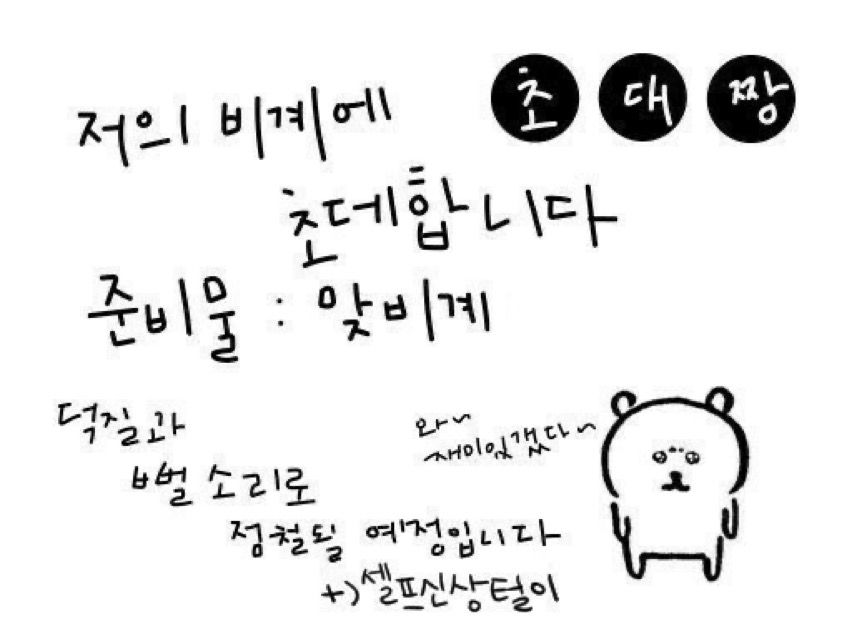 초대짱
저의 비계에
초데합니다
준비물 : 맞비계
덕질과
뻘 소리로
점철될 예정입니다
+) 셀프신상털이
와~
재미있겠다~